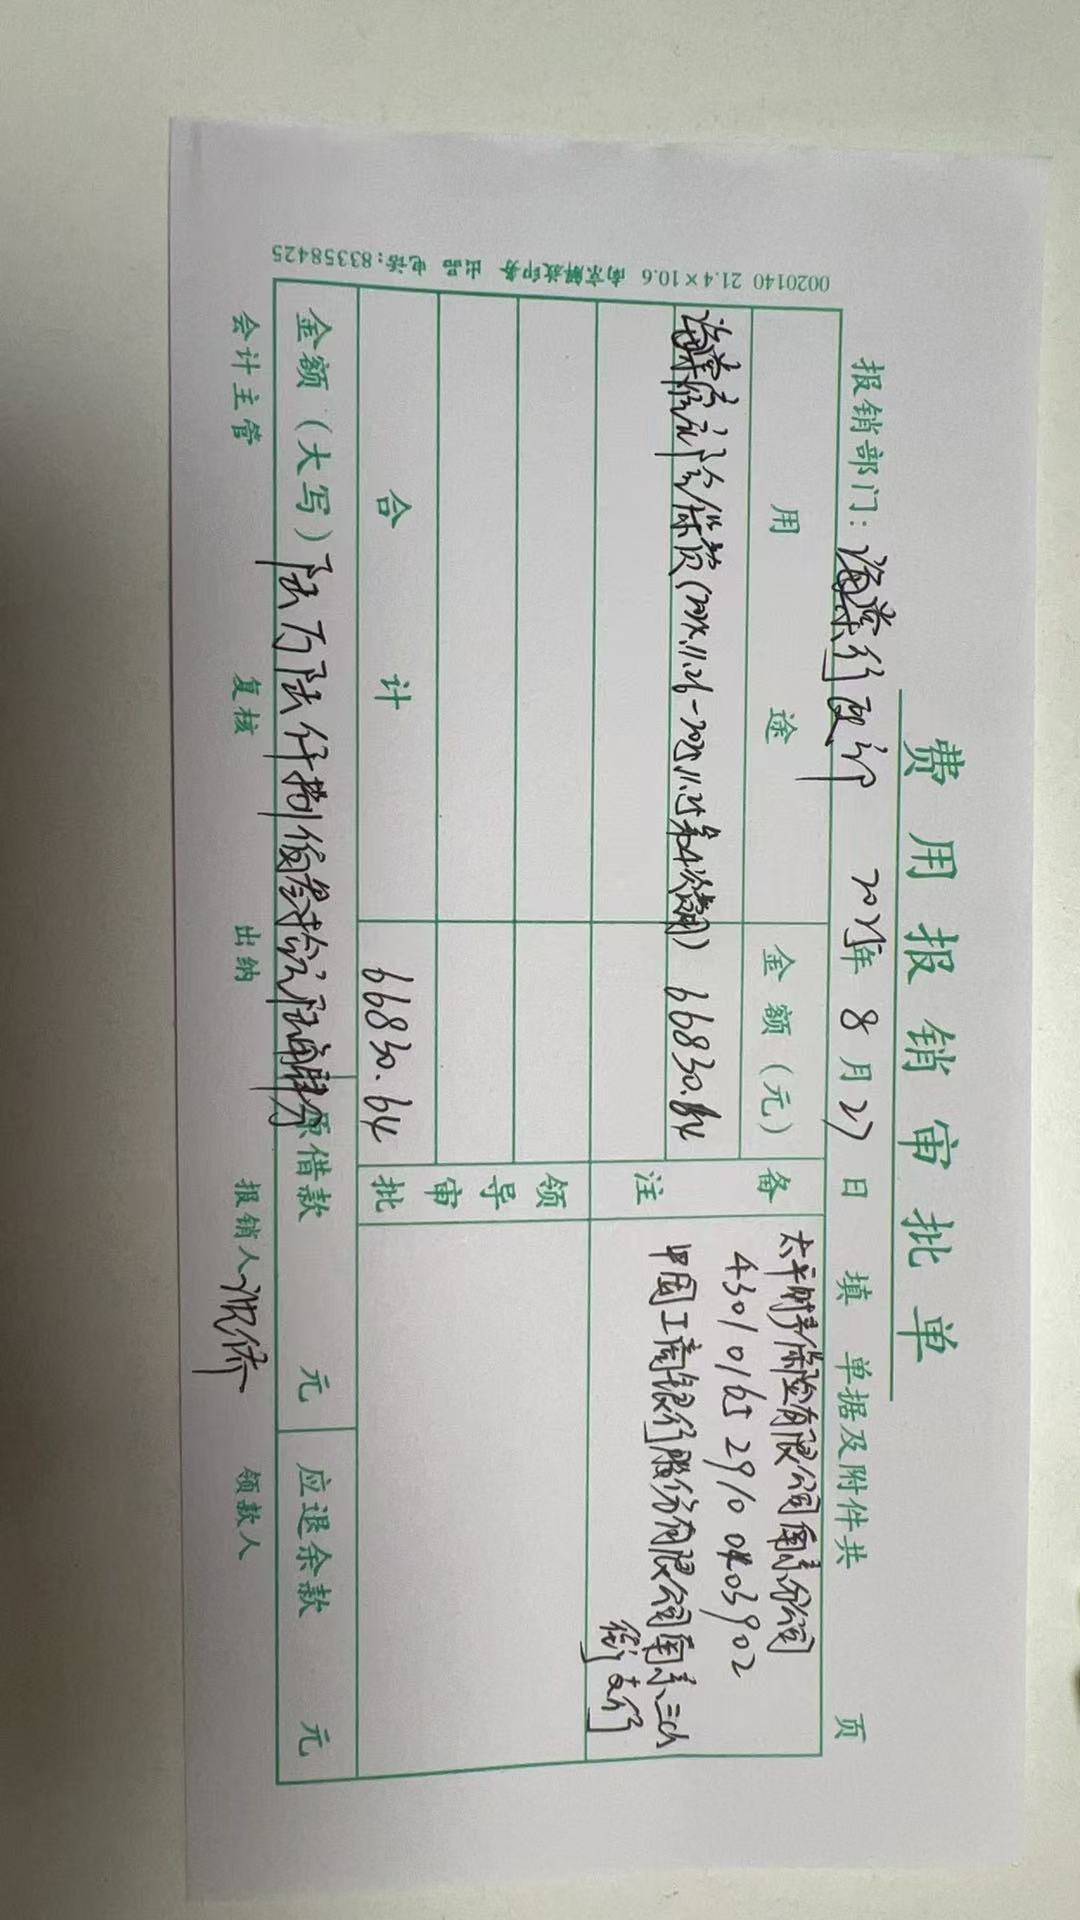 费用报销审批单
报销部门：海棠行政部 2025年 8月27日 填 单据及附件共 页
用途 金额（元） 备注
太平财产保险有限公司南京分公司
4301016529100403902
中国工商银行股份有限公司南京三山
街支行
(2024.11.26-2025.11.25第4次费用) 66830.64
合计 66830.64
领导审批
金额（大写）陆万陆仟捌佰叁拾元陆角肆分 原借款 元 应退余款 元
会计主管 复核 出纳 报销人 领款人
0020140 21.4×10.6 南京解放印务 出品 电话:83358425